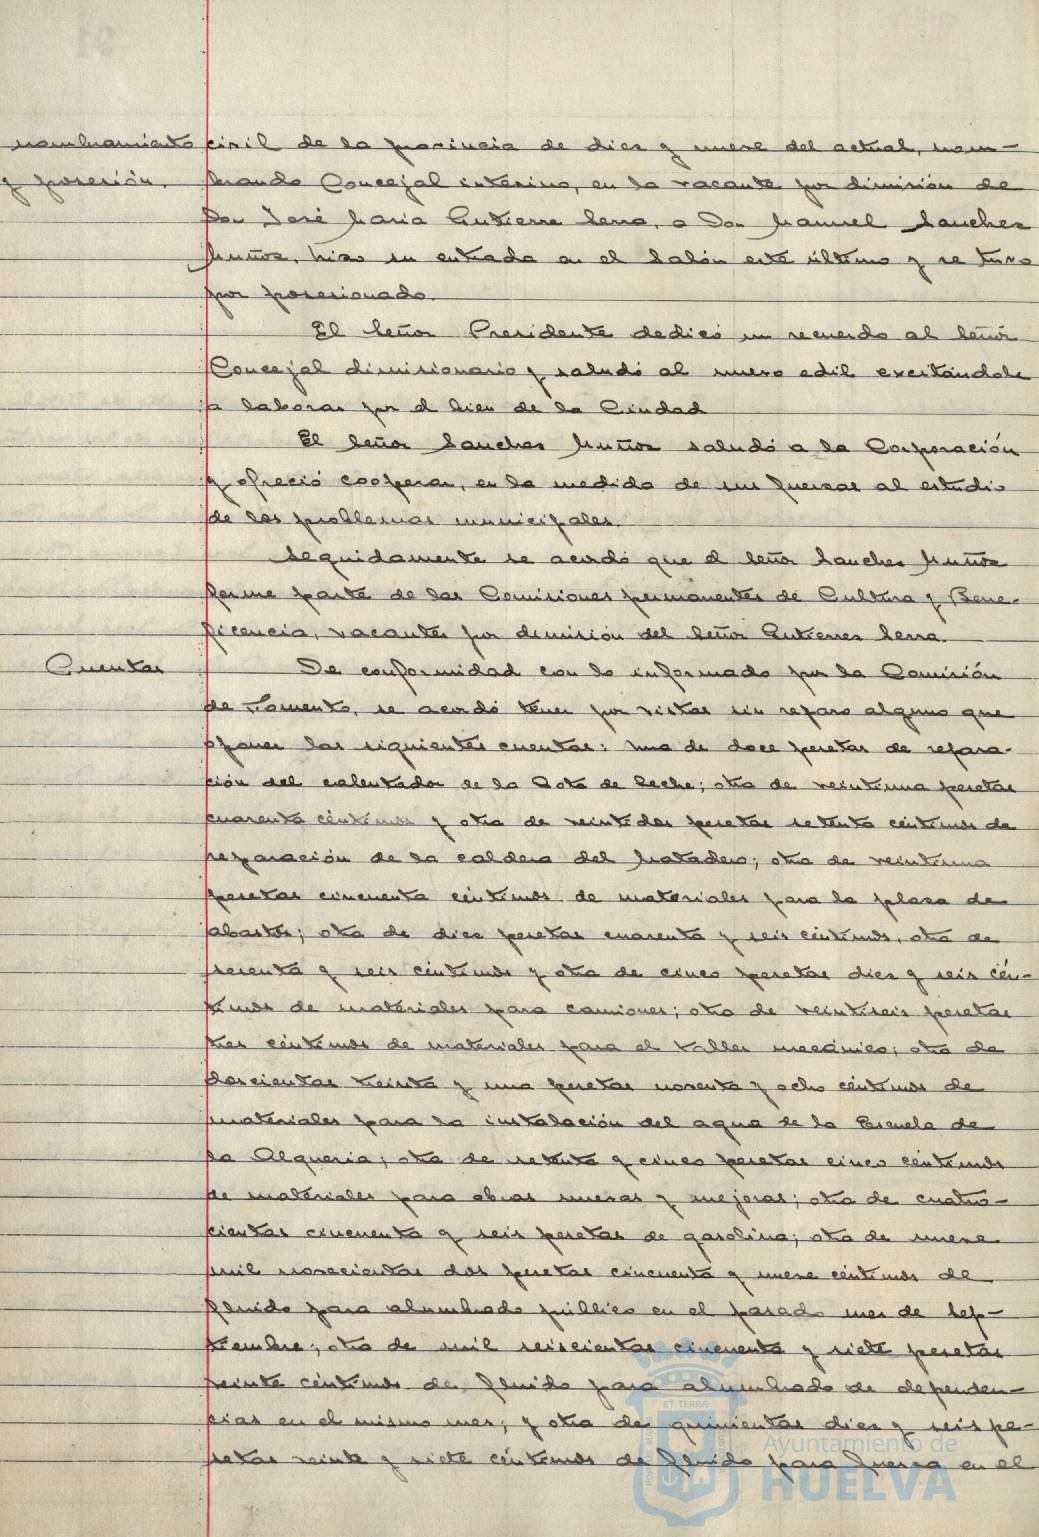 nombramiento civil de la provincia de diez y nueve del actual, nom-
y posesión. brando Concejal interino, en la vacante por dimisión de
Don José Maria Gutierre Serra, a Don Manuel Sanchez
Muñoz, hizo su entrada en el Salón este último y se tuvo
por posesionado.
El Señor Presidente dedicó un recuerdo al Señor
Concejal dimisionario y saludó al nuevo edil excitándole
a laborar por el bien de la Ciudad
El Señor Sanchez Muñoz saludó a la Corporación
y ofreció cooperar, en la medida de sus fuerzas al estudio
de los problemas municipales.
Seguidamente se acordó que el Señor Sanchez Muñoz
forme parte de las Comisiones permanentes de Cultura y Bene-
ficencia, vacantes por dimisión del Señor Gutierrez Serra.
Cuentas De conformidad con lo informado por la Comisión
de Fomento, se acordó tener por vistas sin reparo alguno que
oponer las siguientes cuentas: una de doce pesetas de repara-
ción del calentador de la Gota de Leche; otra de veintiuna pesetas
cuarenta céntimos y otra de veintidos pesetas setenta céntimos de
reparación de la caldera del Matadero; otra de veintiuna
pesetas cincuenta céntimos de materiales para la plaza de
abastos; otra de diez pesetas cuarenta y seis céntimos, otra de
sesenta y seis céntimos y otra de cinco pesetas diez y seis cén-
timos de materiales para camiones; otra de veintiseis pesetas
tres céntimos de materiales para el taller mecánico; otra de
doscientas treinta y una pesetas noventa y ocho céntimos de
materiales para la instalación del agua de la Escuela de
la Alqueria; otra de setenta y cinco pesetas cinco céntimos
de materiales para obras nuevas y mejoras; otra de cuatro-
cientas cincuenta y seis pesetas de gasolina; otra de nueve
mil novecientas dos pesetas cincuenta y nueve céntimos de
fluido para alumbrado público en el pasado mes de Sep-
tiembre; otra de mil seiscientas cincuenta y siete pesetas
veinte céntimos de fluido para alumbrado de dependen-
cias en el mismo mes; y otra de quinientas diez y seis pe-
setas veinte y siete céntimos de fluido para fuerza en el
Ayuntamiento de
HUELVA